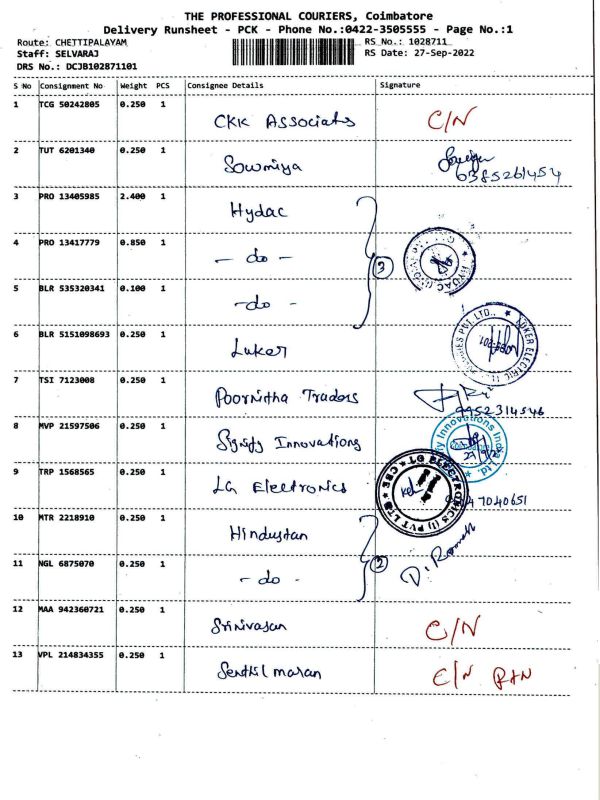 THE PROFESSIONAL COURIERS, Coimbatore
Delivery Runsheet - PCK - Phone No.:0422-3505555 - Page No.:1
Route: CHETTIPALAYAM RS No.: 1028711
Staff: SELVARAJ RS Date: 27-Sep-2022
DRS No.: DCJB102871101
S No Consignment No Weight PCS Consignee Details Signature
1 TCG 50242805 0.250 1 CKK Associates C/N
2 TUT 6201340 0.250 1 Sowmiya 6385261454
3 PRO 13405985 2.400 1 Hydac
4 PRO 13417779 0.850 1 - do - 3 HYDAC
5 BLR 535320341 0.100 1 - do -
6 BLR 5151098693 0.250 1 Luker LUKER ELECTRIC PVT.LTD.,
7 TSI 7123008 0.250 1 Poornitha Traders 9952314546
8 MVP 21597506 0.250 1 Signify Innovations Innovations India Ltd.
9 TRP 1568565 0.250 1 LG Electronics LG ELECTRONICS (I) PVT LTD CBE 7040651
10 MTR 2218910 0.250 1 Hindustan
11 NGL 6875070 0.250 1 - do - 2 D. Ramesh
12 MAA 942360721 0.250 1 Srinivasan C/N
13 VPL 214834355 0.250 1 Senthil maran C/N